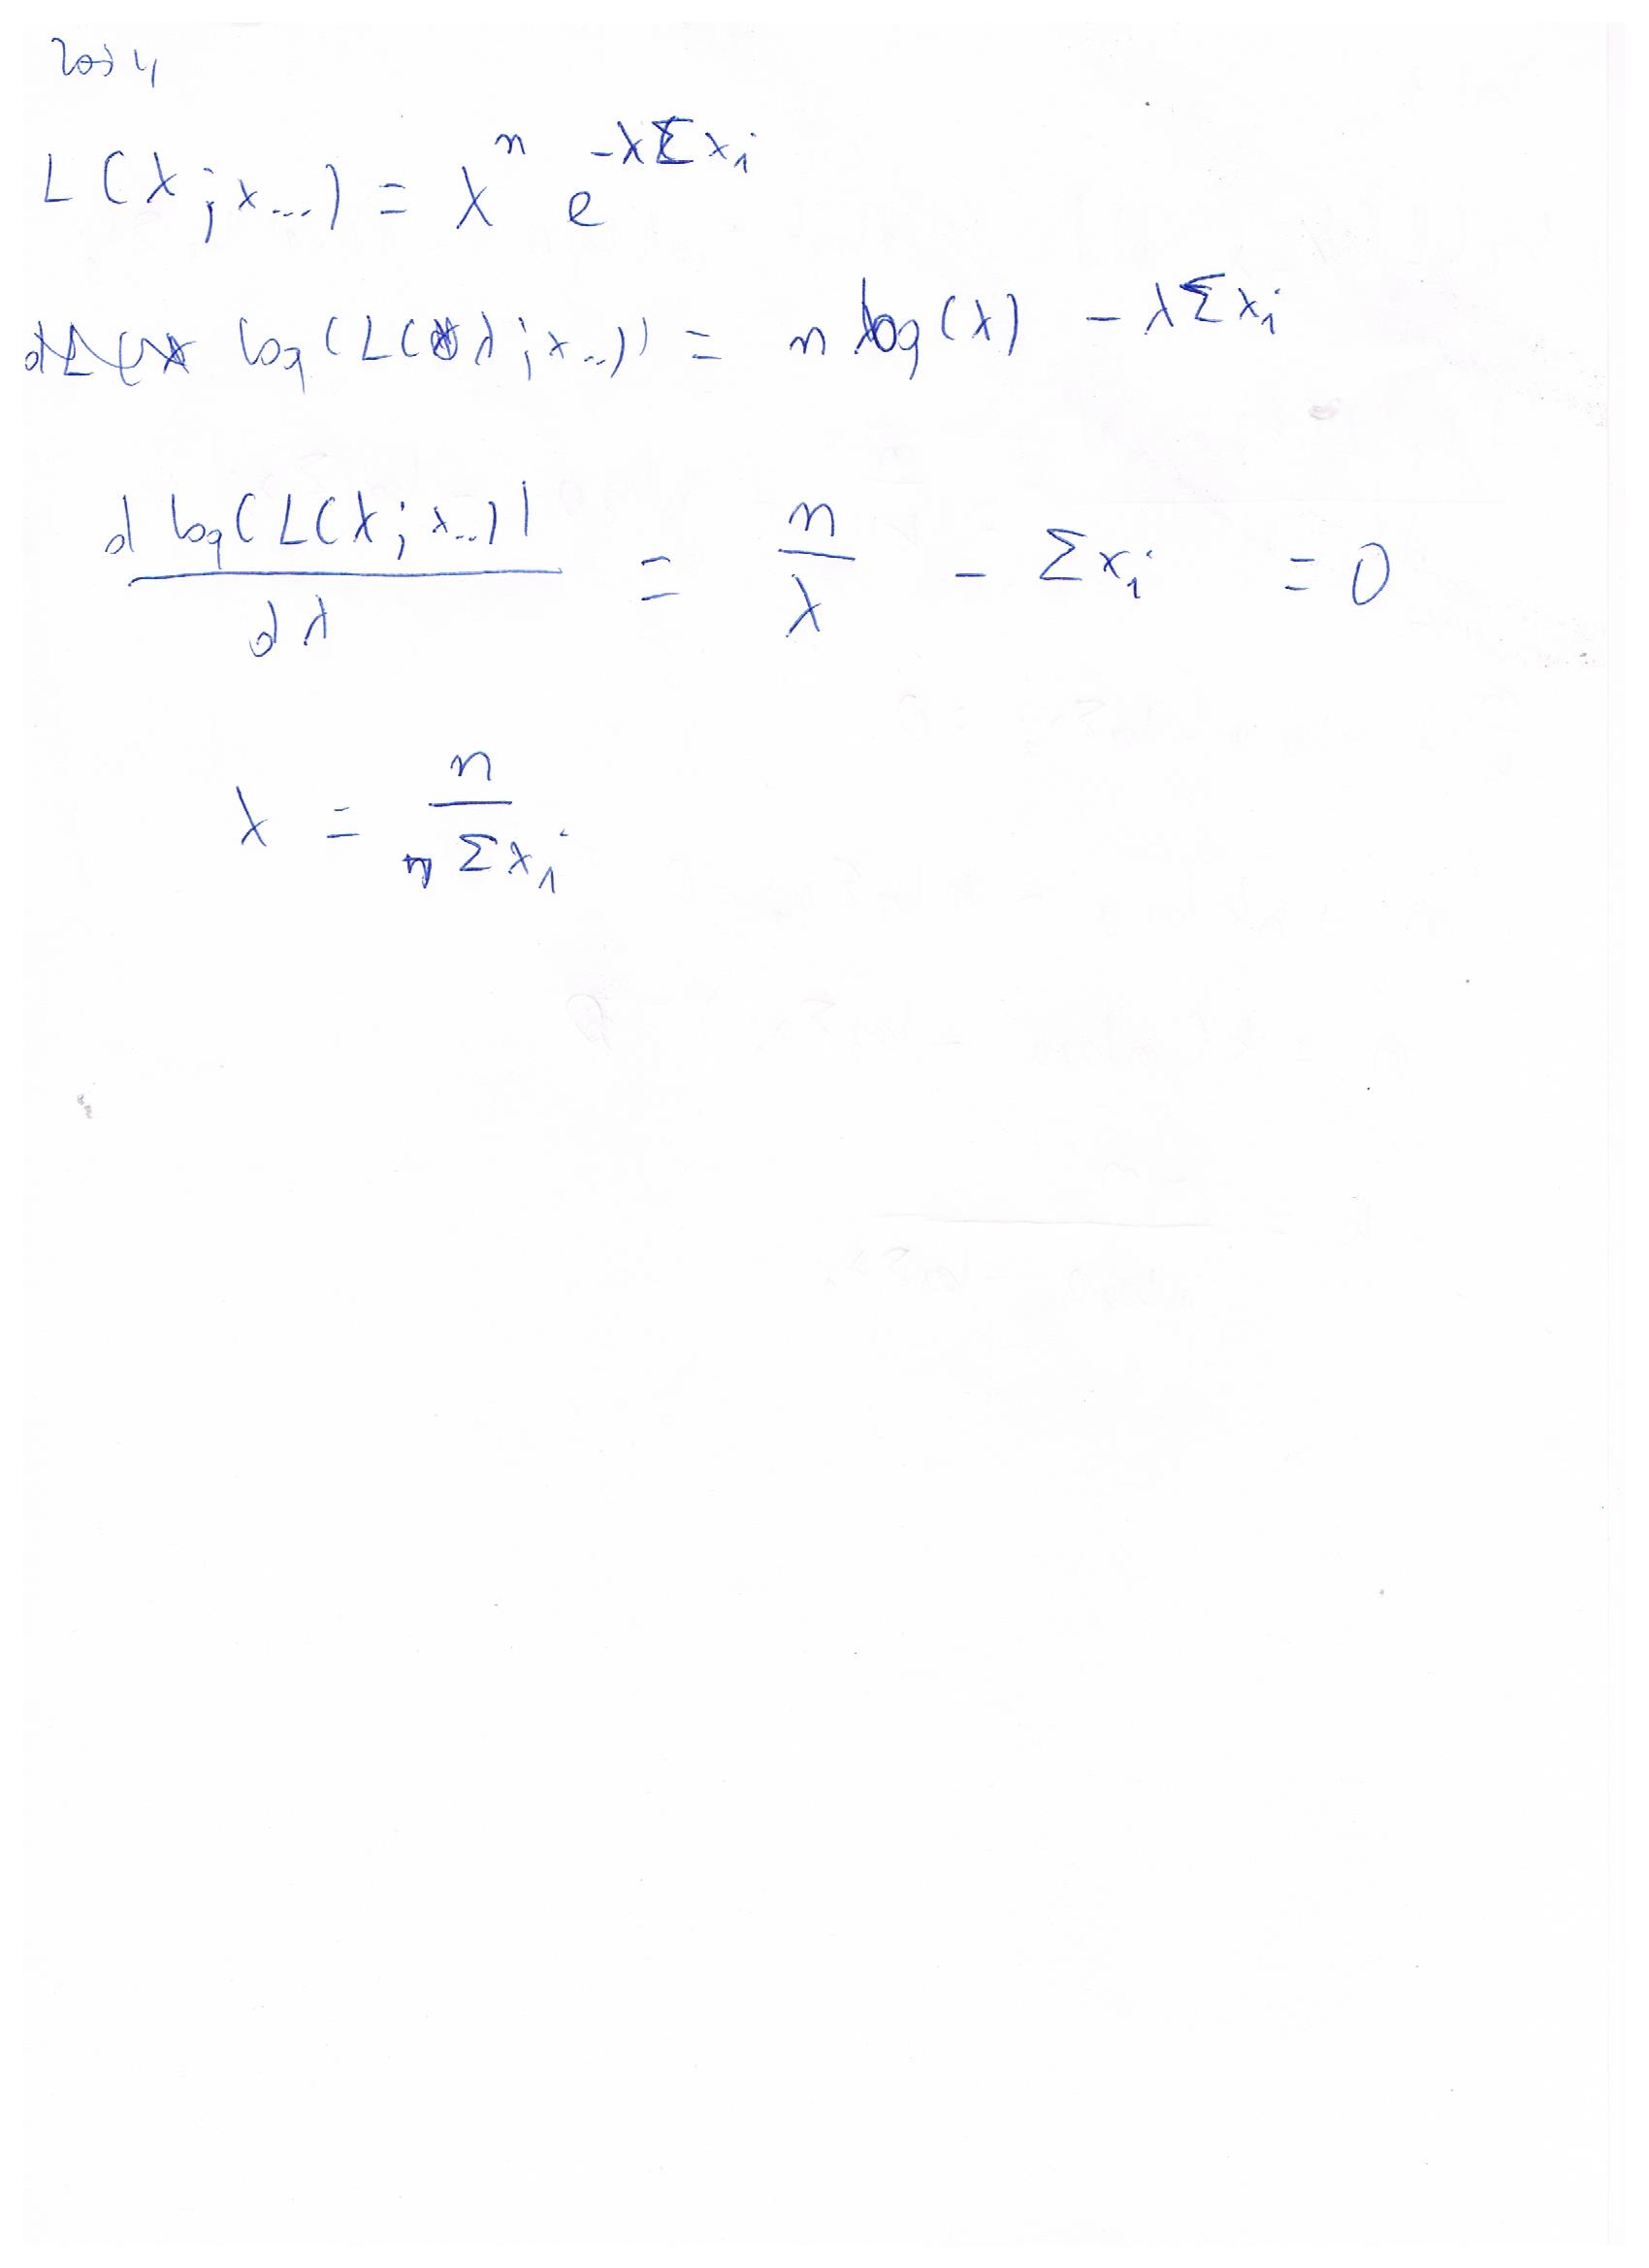 L(λ; x...) = λ^n e^{-λ Σ x_i}
log(L(λ; x..)) = n log(λ) - λ Σ x_i
d log(L(λ; x..)) / dλ = n/λ - Σ x_i = 0
λ = n / Σ x_i